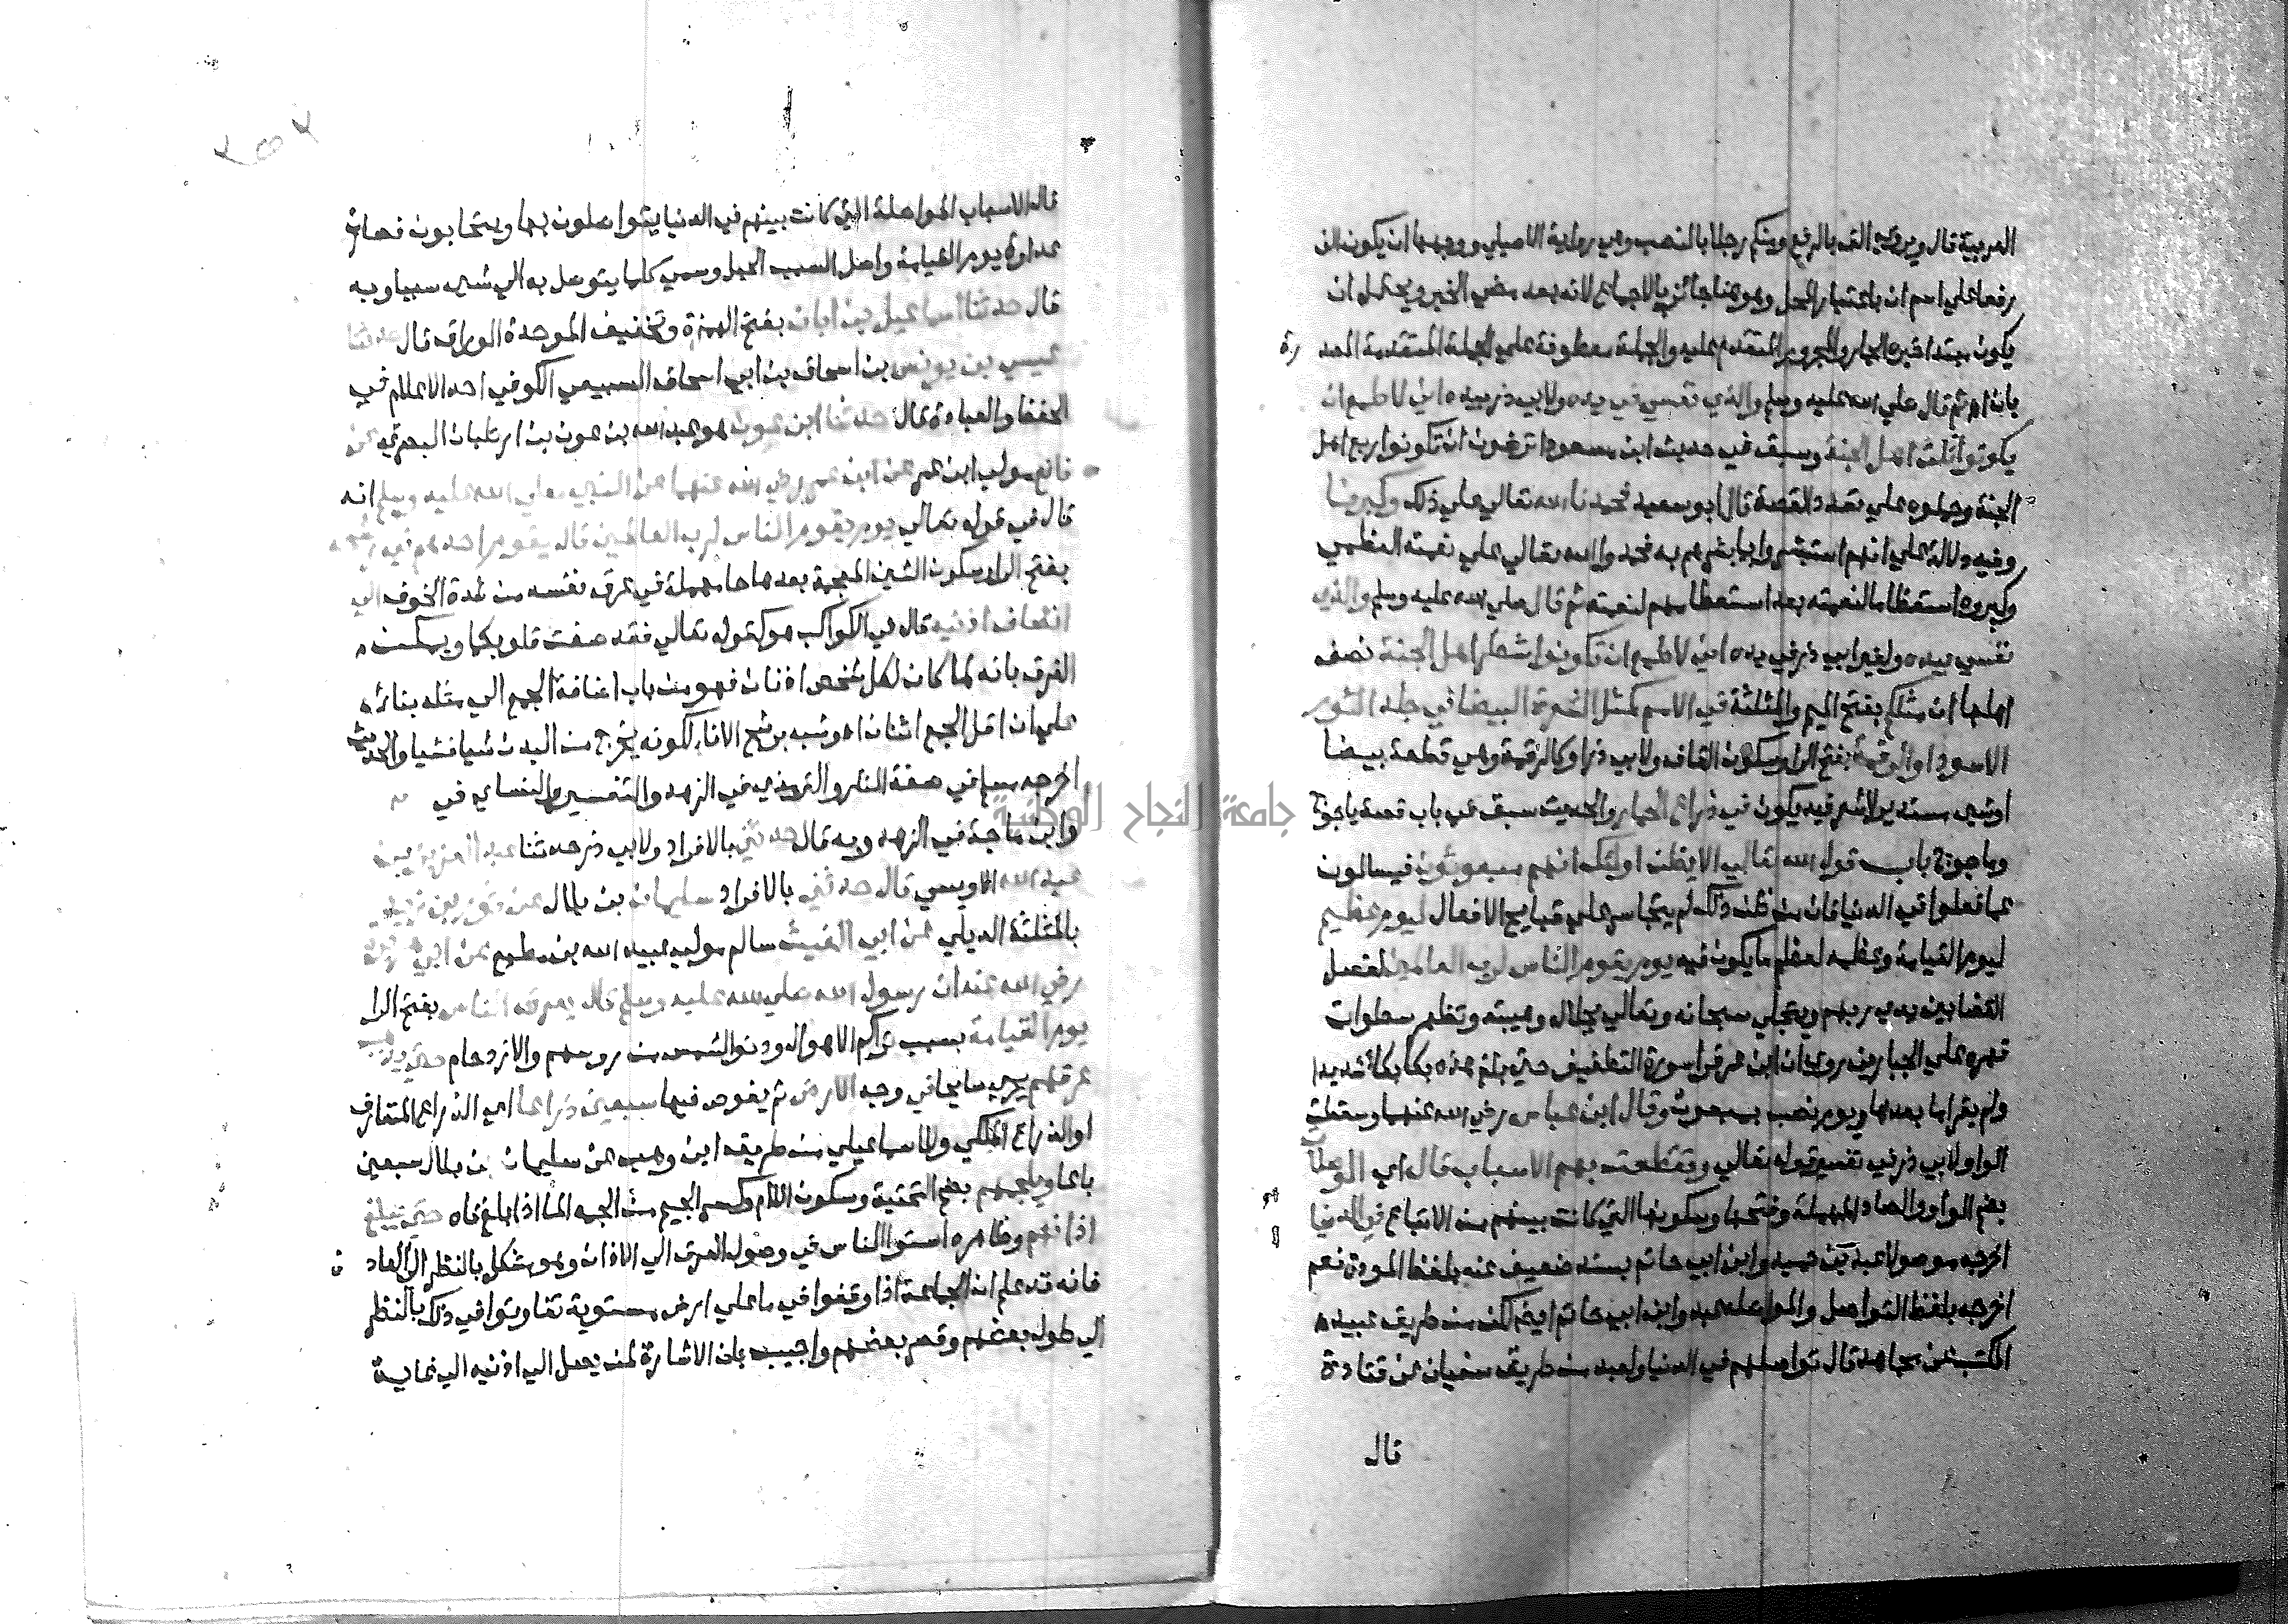 العربية قال ويروى الف بالرفع ومنكم رجلا بالنصب وهي رواية الاصيلي ووجهها ان يكون الف
رفعا على اسم ان باعتبار المحل وهو هنا جائز بالاجماع لانه بعد مضي الخبر ويحتمل ان
يكون مبتدا خبره الجار والمجرور المتقدم عليه والجملة معطوفة على الجملة المتقدمة المصد
رة
بان اهـ ثم قال صلى الله عليه وسلم والذي نفسي في يده ولابي ذر بيده اني لاطمع ان
يكونوا ثلث اهل الجنة وسبق في حديث ابن مسعود اترضون ان تكونوا ربع اهل
الجنة وحملوه على تعدد القصة قال ابو سعيد فحمدنا الله تعالى على ذلك وكبرنا
وفيه دلالة على انهم استبشروا بما بشرهم به فحمدوا الله تعالى على نعمته العظمى
وكبروه استعظاما لنعمته بعد استعظامهم لنعمته ثم قال صلى الله عليه وسلم والذي
نفسي بيده ولغير ابي ذر في يده اني لاطمع ان تكونوا شطر اهل الجنة نصف
اهلها ان مثلكم بفتح الميم والمثلثة في الامم كمثل الشعرة البيضا في جلد الثور
الاسود او الرقمة بفتح الرا وسكون القاف ولابي ذر او كالرقمة وهي قطعة بيضا
او شي مستدير لا شعر فيه يكون في ذراع الحمار والحديث سبق في باب قصة ياجوج
وماجوج باب قول الله تعالى الا يظن اولئك انهم مبعوثون فيسالون
عما فعلوا في الدنيا فان من ظن ذلك لم يتجاسر على قبايح الافعال ليوم عظيم
ليوم القيامة وعظمه لعظم ما يكون فيه يوم يقوم الناس لرب العالمين لفصل
القضا بين يدي ربهم ويتجلى سبحانه وتعالى بجلال وهيبته وتظهر سطوات
قهره على الجبارين روي ان ابن عمر قرا سورة التطفيف حتى بلغ هذه بكا بكا شديدا
ولم يقرا ما بعدها ويوم نصب بمبعوث وقال ابن عباس رضي الله عنهما وسقطت
الواو لابي ذر في تفسير قوله تعالى وتقطعت بهم الاسباب قال اي الوصلات
بضم الواو والصاد المهملة وفتحها وسكونها التي كانت بينهم من الاتباع في الدنيا
اخرجه موصولا عبد بن حميد وابن ابي حاتم بسند ضعيف عنه بلفظ المودة نعم
اخرجه بلفظ التواصل والمواصلة عبد وابن ابي حاتم ايضا لكن من طريق عبيد
المكتب عن مجاهد قال تواصلهم في الدنيا ولعبد من طريق سفيان عن قتادة
قال
قال الاسباب المواصلة التي كانت بينهم في الدنيا يتواصلون بها ويتحابون فصارت
عداوة يوم القيامة واصل السبب الحبل وسمي كل ما يتوصل به الى شي سببا وبه
قال حدثنا اسماعيل بن ابان بفتح الهمزة وتخفيف الموحدة الوراق قال حدثنا
عيسى بن يونس بن اسحاق بن ابي اسحاق السبيعي الكوفي احد الاعلام في
الحفظ والعبادة قال حدثنا ابن عون هو عبد الله بن عون بن ارطبان البصري عن
نافع مولى ابن عمر عن ابن عمر رضي الله عنهما عن النبي صلى الله عليه وسلم انه
قال في قوله تعالى يوم يقوم الناس لرب العالمين قال يقوم احدهم في رشحه
بفتح الرا وسكون الشين المعجمة بعدها حا مهملة في عرق نفسه من شدة الخوف الى
انصاف اذنيه قال في الكواكب هو كقوله تعالى فقد صغت قلوبكما ويمكن
الفرق بانه لما كان لكل شخص اذنان فهو من باب اضافة الجمع الى مثله بنا
على ان اقل الجمع اثنان اهـ وشبه برشح الانا لكونه يخرج من البدن شيا فشيا والحديث
اخرجه مسلم في صفة النار والترمذي في الزهد والتفسير والنساي في
وابن ماجة في الزهد وبه قال حدثني بالافراد ولابي ذر حدثنا عبد العزيز بن
عبد الله الاويسي قال حدثني بالافراد سليمان بن بلال عن ثور بن زيد
بالمثلثة الديلي عن ابي الغيث سالم مولى عبيد الله بن مطيع عن ابي هريرة
رضي الله عنه ان رسول الله صلى الله عليه وسلم قال يعرق الناس بفتح الرا
يوم القيامة بسبب تراكم الاهوال ودنو الشمس من روسهم والازدحام حتى يذهب
عرقهم يجري سايحا في وجه الارض ثم يغوص فيها سبعين ذراعا اي الذراع المتعارف
او الذراع الملكي وللاسماعيلي من طريق ابن وهب عن سليمان بن بلال سبعين
باعا ويلجمهم بضم التحتية وسكون اللام وكسر الجيم من الجمه الما اذا بلغ فاه حتى يبلغ
اذانهم وظاهره استوا الناس في وصول العرق الى الاذان وهو مشكل بالنظر الى العادة
فانه قد علم ان الجماعة اذا وقفوا في ما على ارض مستوية تفاوتوا في ذلك بالنظر
الى طول بعضهم وقصر بعضهم واجيب بان الاشارة لمن يصل الى اذنيه الى غاية
جامعة النجاح الوطنية